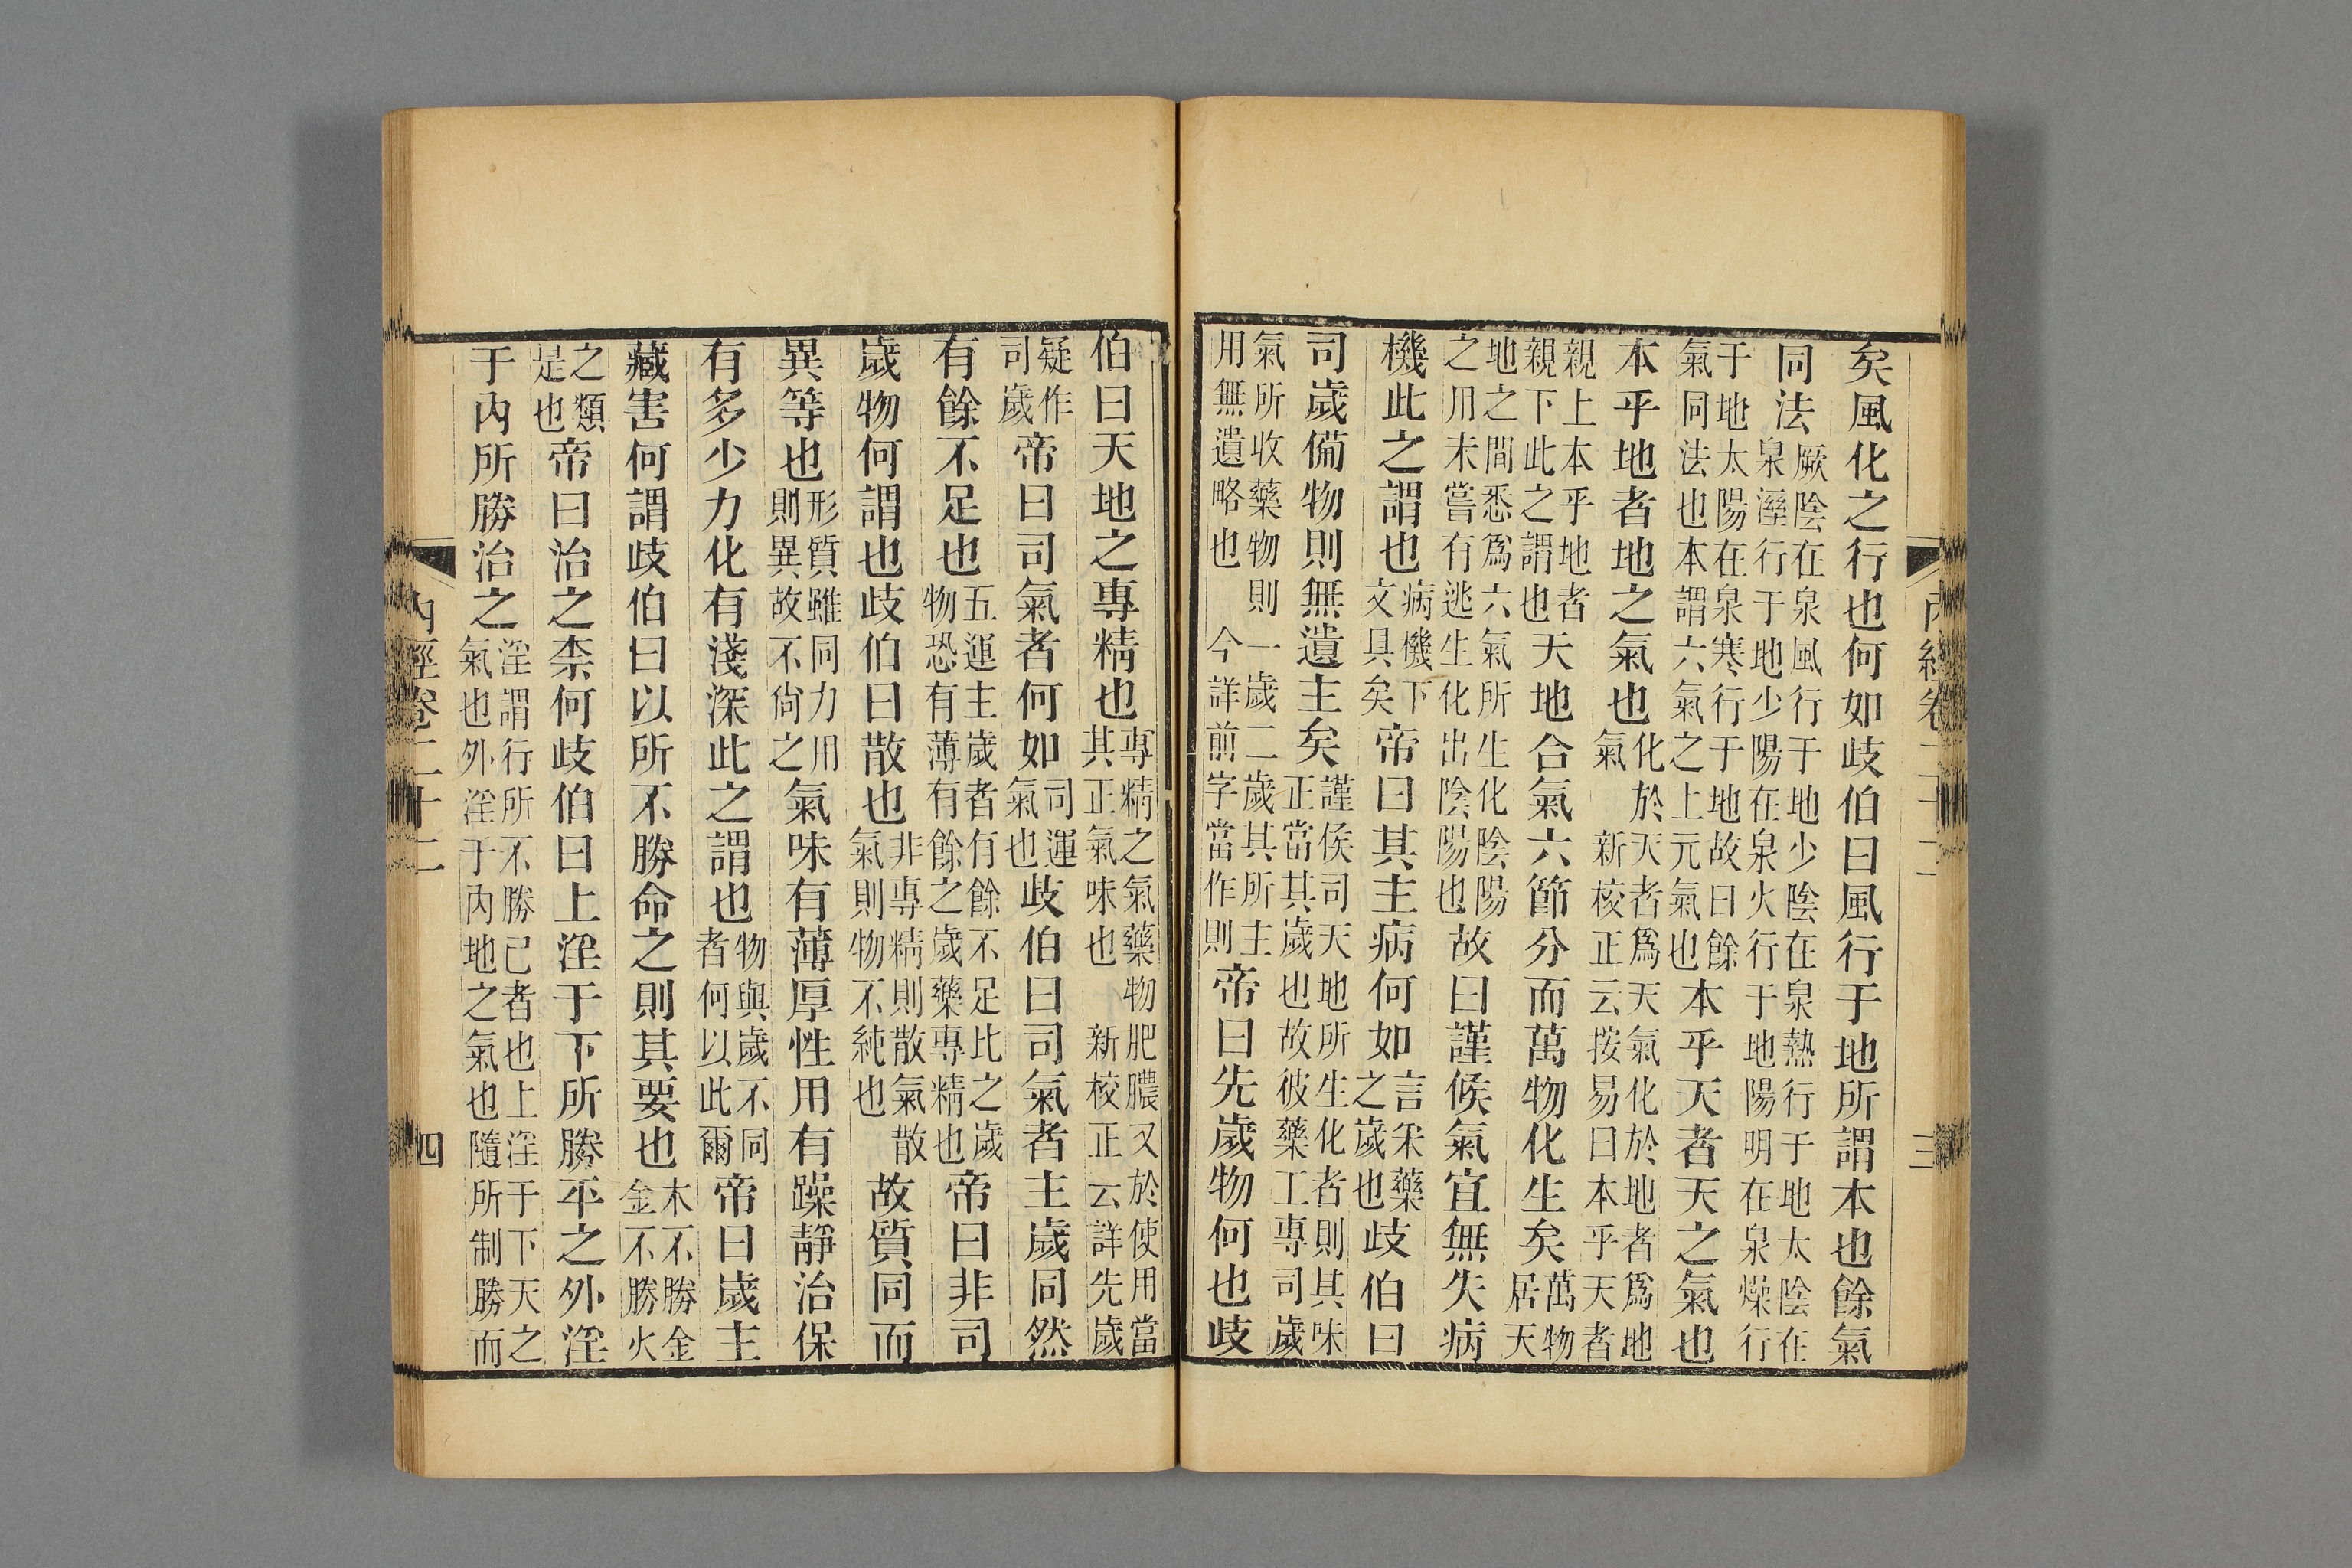 內經卷二十二 三
矣風化之行也何如歧伯曰風行于地所謂本也餘氣
同法厥陰在泉風行于地少陰在泉熱行于地太陰在泉溼行于地少陽在泉火行于地陽明在泉燥行
于地太陽在泉寒行于地故曰餘氣同法也本謂六氣之上元氣也本乎天者天之氣也
本乎地者地之氣也化於天者爲天氣化於地者爲地氣 新校正云按易曰本乎天者
親上本乎地者親下此之謂也天地合氣六節分而萬物化生矣萬物居天
地之間悉爲六氣所生化陰陽之用未嘗有逃生化出陰陽也故曰謹候氣宜無失病
機此之謂也病機下文具矣帝曰其主病何如言采藥之歲也歧伯曰
司歲備物則無遺主矣謹候司天地所生化者則其味正當其歲也故彼藥工專司歲
氣所收藥物則一歲二歲其所主用無遺略也 今詳前字當作則帝曰先歲物何也歧
伯曰天地之專精也專精之氣藥物肥膿又於使用當其正氣味也 新校正云詳先歲
疑作司歲帝曰司氣者何如司運氣也歧伯曰司氣者主歲同然
有餘不足也五運主歲者有餘不足比之歲物恐有薄有餘之歲藥專精也帝曰非司
歲物何謂也歧伯曰散也非專精則散氣散氣則物不純也故質同而
異等也形質雖同力用則異故不尙之氣味有薄厚性用有躁靜治保
有多少力化有淺深此之謂也物與歲不同者何以此爾帝曰歲主
藏害何謂歧伯曰以所不勝命之則其要也木不勝金金不勝火
之類是也帝曰治之柰何歧伯曰上淫于下所勝平之外淫
于內所勝治之淫謂行所不勝己者也上淫于下天之氣也外淫于內地之氣也隨所制勝而
內經卷二十二 四